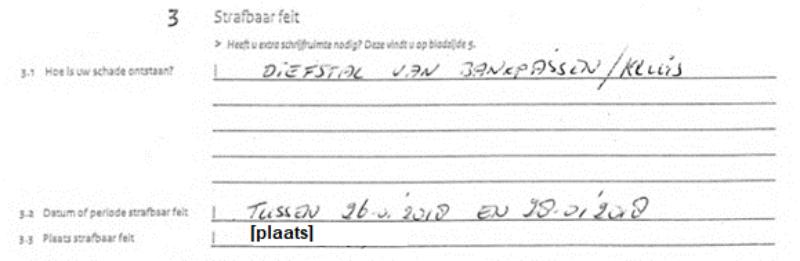 3 Strafbaar feit
> Heeft u extra schrijfruimte nodig? Deze vindt u op bladzijde 5.
3.1 Hoe is uw schade ontstaan? DIEFSTAL VAN BANKPASSEN / KLUIS
3.2 Datum of periode strafbaar feit TUSSEN 26-01 2018 EN 28-01 2018
3.3 Plaats strafbaar feit [plaats]